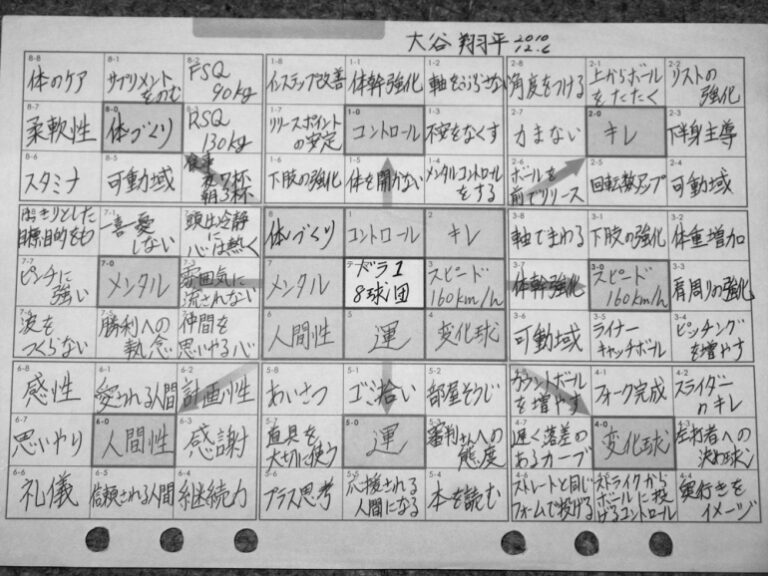 大谷 翔平 2010
12.6
8-8 体のケア
8-1 サプリメント
をのむ
FSQ
90kg
1-8 インステップ改善
1-1 体幹強化
1-2 軸をぶらさない
2-8 角度をつける
2-1 上からボール
をたたく
2-2 リストの
強化
8-7 柔軟性
8-0 体づくり
RSQ
130kg
1-7 リリースポイント
の安定
1-0 コントロール
1-3 不安をなくす
2-7 力まない
2-0 キレ
2-3 下半身主導
8-6 スタミナ
8-5 可動域
食事
夜7杯
朝3杯
1-6 下肢の強化
1-5 体を開かない
1-4 メンタルコントロール
をする
2-6 ボールを
前でリリース
2-5 回転数アップ
2-4 可動域
はっきりとした
目標、目的をもつ
7-1 一喜一憂
しない
頭は冷静
に
心は熱く
8 体づくり
1 コントロール
2 キレ
3-8 軸でまわる
3-1 下肢の強化
3-2 体重増加
7-7 ピンチに
強い
7-0 メンタル
7-3 雰囲気に
流されない
7 メンタル
ドラ1
8球団
3 スピード
160km/h
3-7 体幹強化
3-0 スピード
160km/h
3-3 肩周りの強化
波を
つくらない
7-5 勝利への
執念
7-4 仲間を
思いやる心
6 人間性
5 運
4 変化球
3-6 可動域
3-5 ライナー
キャッチボール
3-4 ピッチング
を増やす
6-8 感性
6-1 愛される人間
6-2 計画性
5-8 あいさつ
5-1 ゴミ拾い
5-2 部屋そうじ
カウントボール
を増やす
4-1 フォーク完成
4-2 スライダー
のキレ
6-7 思いやり
6-0 人間性
6-3 感謝
5-7 道具を
大切に使う
5-0 運
審判さんへの
態度
4-7 遅く落差の
あるカーブ
4-0 変化球
左打者への
決め球
6-6 礼儀
6-5 信頼される人間
6-4 継続力
5-6 プラス思考
5-5 応援される
人間になる
5-4 本を読む
ストレートと同じ
フォームで投げる
ストライクから
ボールに投
げるコントロール
4-4 奥行きを
イメージ